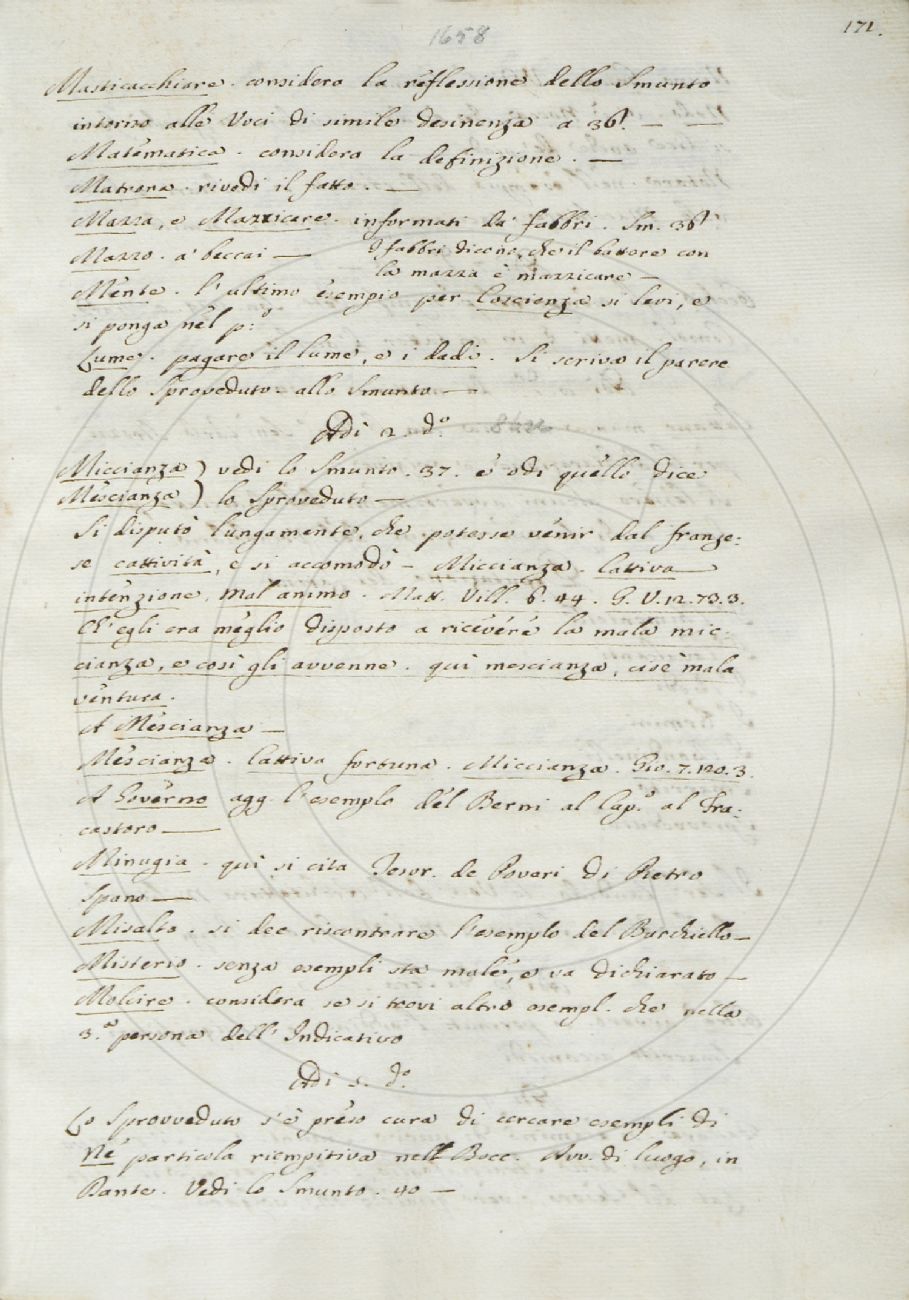 1658
171.
Masticacchiare. considera la reflessione dello Smunto
intorno alle Voci di simile desinenza a 36t. —
Matematica. considera la definizione. —
Matrona. rivedi il fatto. —
Mazza, e Mazzicare. informati da' fabbri. Sm. 36t
Mazzo. a' beccai — I fabbri dicono, che il battere con
la mazza è mazzicare —
Mente. l'ultimo esempio per Coscienza si levi, e
si ponga nel p:o
Lume. pagare il lume, e i dadi. Si scriva il parere
dello Sproveduto allo Smunto —
Adì 2. do.
Miccianza ) vedi lo Smunto. 37. e odi quello dice
Mescianza ) lo Sproveduto —
Si disputò lungamente, che potesse venir dal franze:
se cattività, e si accomodò — Miccianza. Cattiva
intenzione, mal'animo. Matt. Vill. 6. 44. G. V. 12. 73. 3.
Ch'egli era meglio disposto a ricévére la mala mic:
cianza, e così gli avvenne. qui mescianza, cioè mala
ventura.
A Mescianza —
Mescianza. Cattiva fortuna. Miccianza. Gio. 7. 120. 3.
A Governo agg. l'esemplo del Berni al Cap.o al Fra:
castoro —
Minugia. qui si cita Tesor. de Poveri di Pietro
Spano —
Misalta. si dee riscontrare l'esemplo del Burchiello —
Misterio. senza esempli sta male, e va dichiarato —
Molcire. considera se si trovi altro esempl. che nella
3.a persona dell'Indicativo
Adì 5. do.
Lo Sprovveduto s'è preso cura di cercare esempli di
Né particola riempitiva nell Bocc. Avv. di luogo, in
Dante. Vedi lo Smunto. 40 —